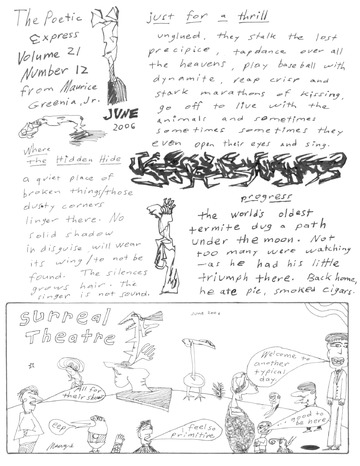 The Poetic
Express
Volume 21
Number 12
from Maurice
Greenia, Jr.
JUNE
2006
just for a thrill
unglued, they stalk the lost
precipice, tapdance over all
the heavens, play baseball with
dynamite, reap crisp and
stark marathons of kissing,
go off to live with the
animals and sometimes
sometimes sometimes they
even open their eyes and sing.
Where
The Hidden Hide
a quiet place of
broken things/those
dusty corners
linger there. No
solid shadow
in disguise will wear
its wing/to not be
found. The silences
grows hair. The
singer is not sound.
progress
the world's oldest
termite dug a path
under the moon. Not
too many were watching
—as he had his little
triumph there. Back home,
he ate pie, smoked cigars.
Surreal
Theatre
June 2006
Welcome to
another
typical
day.
All for
their show
eep
i feel so
primitive
good to
be here
Maugre